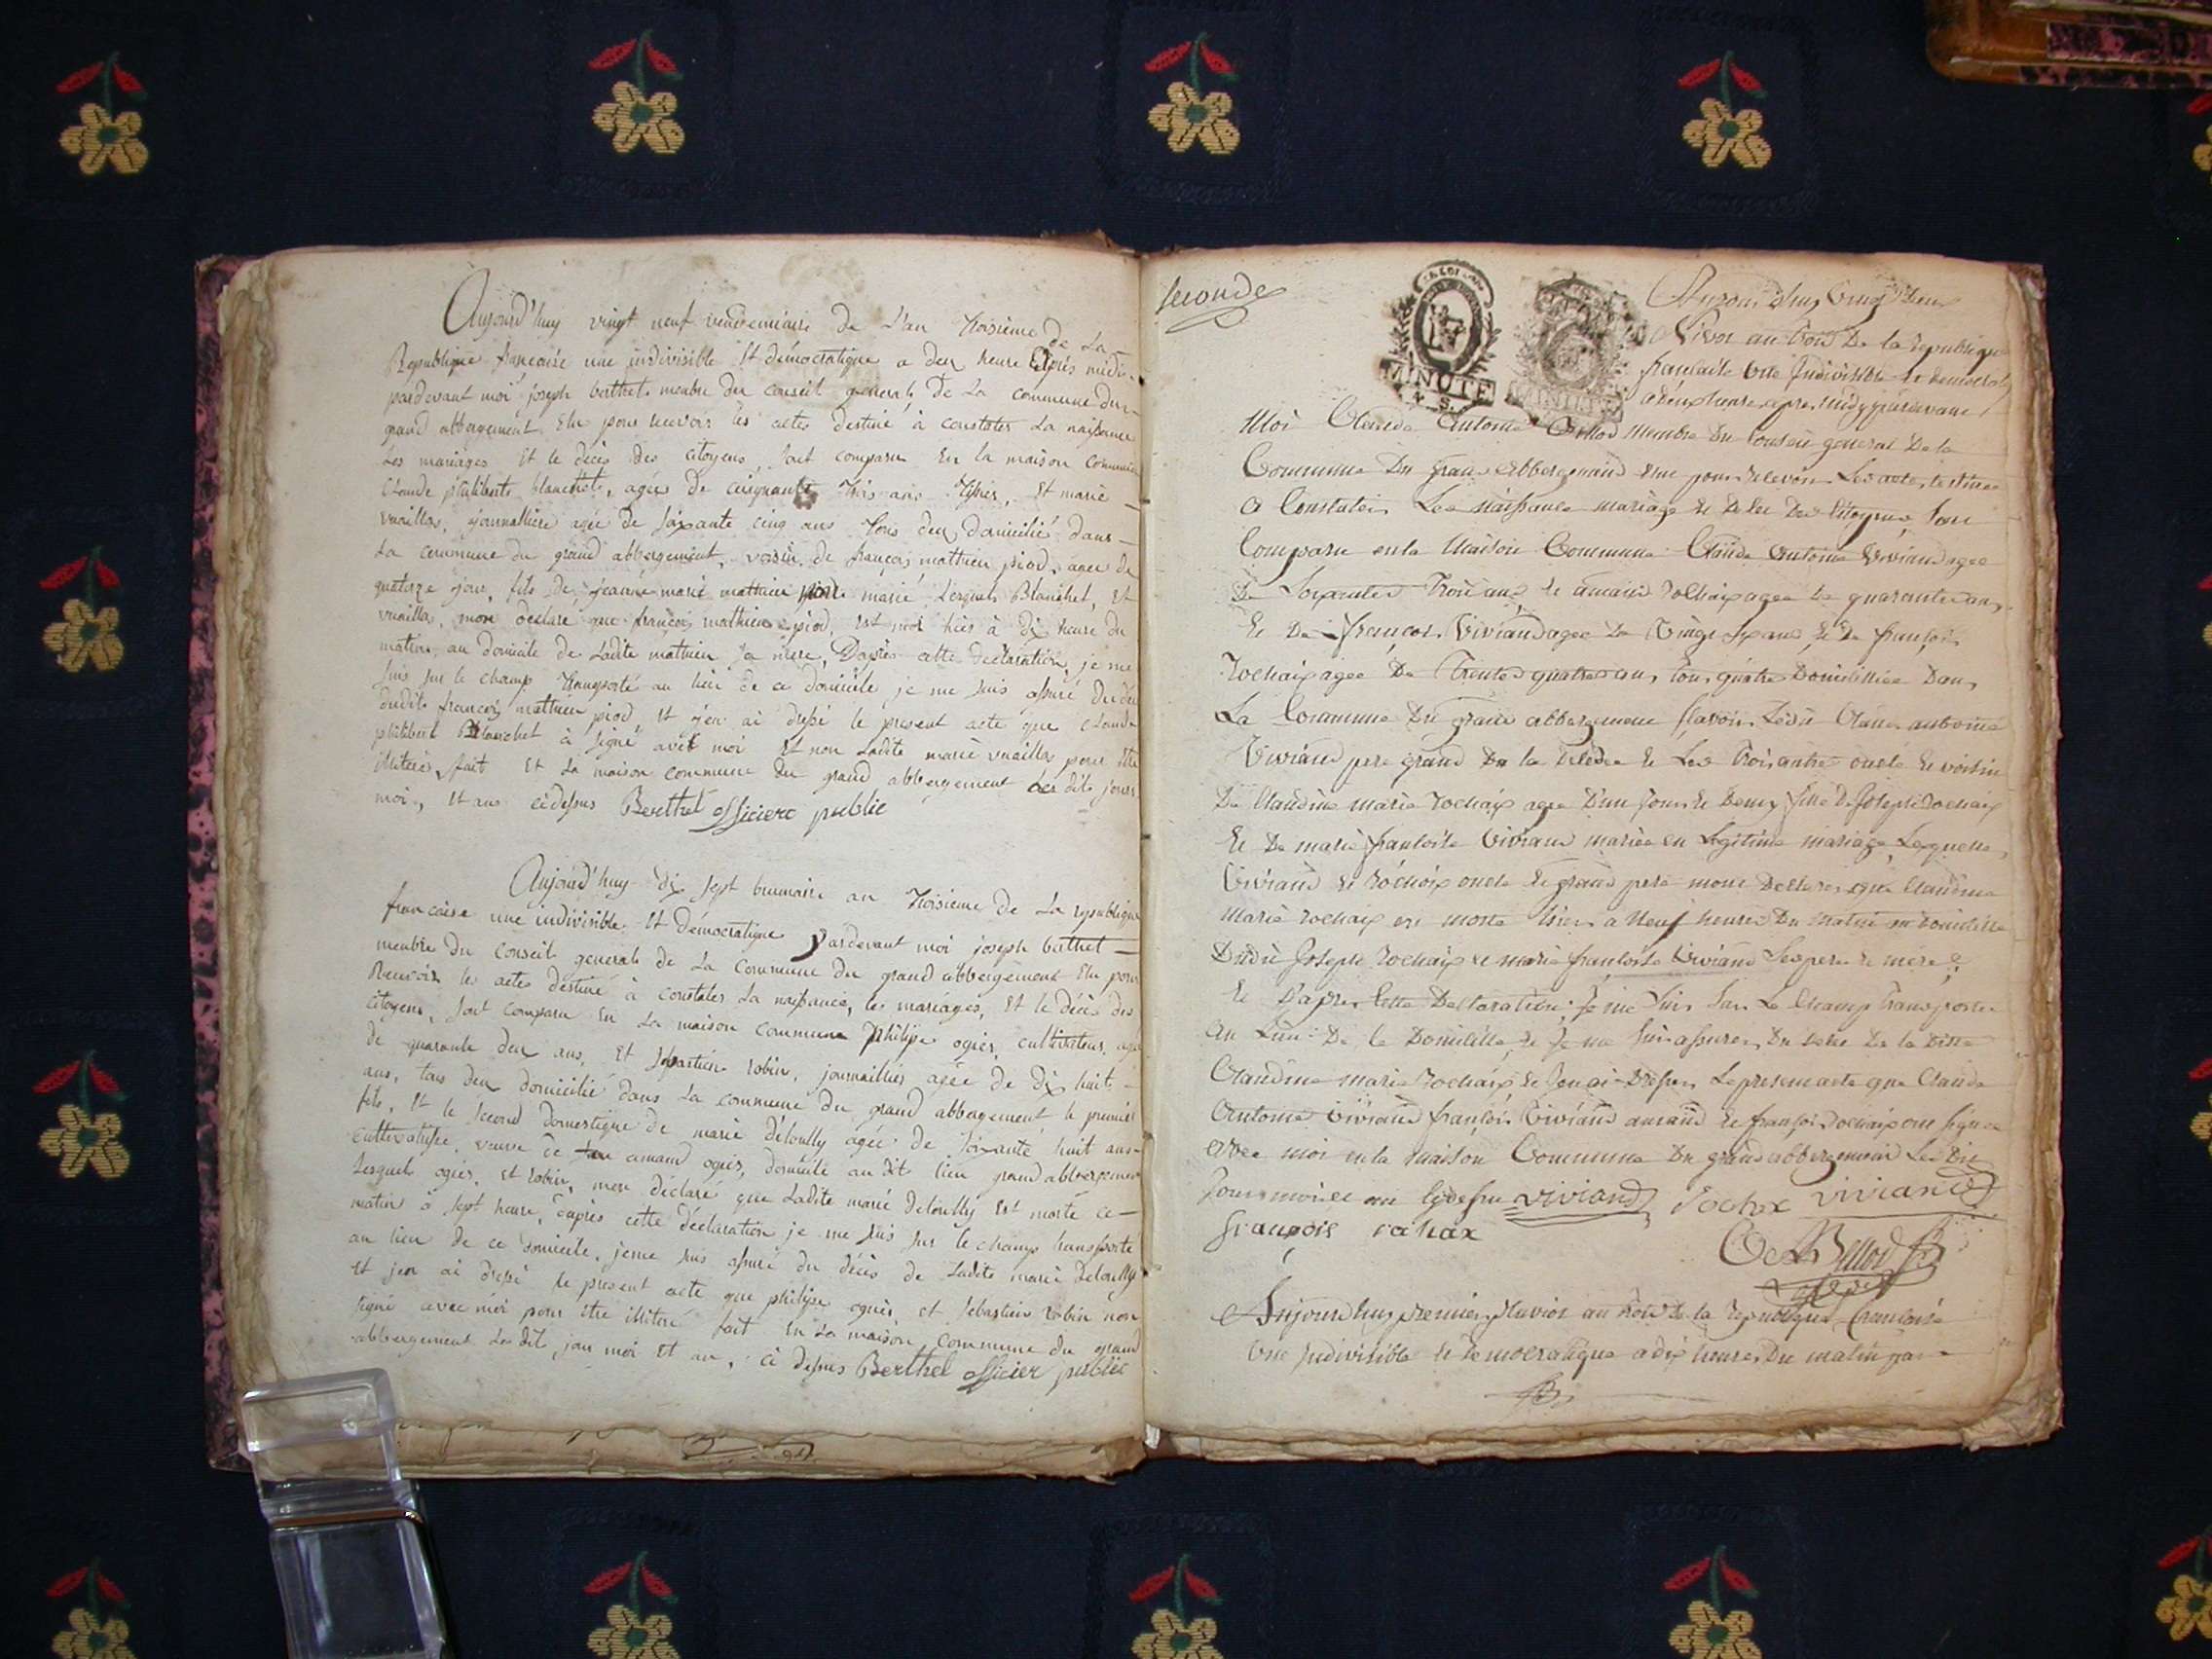 Aujourd'huy vingt neuf vendemiaire de L'an troisième de La
Republique francoise une indivisible Et démocratique a deu heure Epres midi
pardevant moi joseph berthet membre du conseil general de La commune du
grand abbergement Elu pour recevoir les actes destiné à constater La naissance
Les mariages Et le décès des citoyens, sont comparu En la maison commune
Claude philiberte blanchet, agée de cinquante trois ans, Et marie
vuaillas, journalliere agée de soixante cinq ans tous deu domicilié dans
La commune du grand abbergement, voisin de françois mathieu piod, agee de
quatorze jour, fils de jeanne marie mathieu marié Lesquels Blanchet, Et
vuaillas, mon déclaré que françois mathieu piod, est mor hier à dix heure du
matin, au domicile de Ladite mathieu sa mere, Daprès cette déclaration, je me
suis sur le champ transporté au lieu de ce domicile je me suis assuré du décè
dudit françois mathieu piod, Et j'en ai dressé le present acte que claude
philibert Blanchet à signé avec moi Et non Ladite marie vuaillas pour être
illiteré, fait Et La maison commune du grand abbergement Les dit jours
moi, Et an ci dessus Berthet officiere public
Aujourd'huy dix sept brumaire an troisieme de La republique
francaise une indivisible Et démocratique Pardevant moi joseph berthet
membre du conseil general de La commune du grand abbergement Elu pour
Recevoir les actes destiné à constater La naissance, les mariages, Et le décès des
citoyens, sont comparu En La maison commune Philipe ogier, cultivateur, agé
de quarante deu ans, Et sebastien robin, journaillier agée de dix huit
ans, tous deu domicilié dans La commune du grand abbergement, le premier
fils, Et le second domestique de marie deloully agée de soixante huit ans
cultivatrise, veuve de amand ogier, domicilé au dit lieu grand abbergement
Lesquels ogier, et robin, mon déclaré que Ladite marie deloully Est morte ce
matin à sept heure, d'après cette déclaration je me suis sur le champ transporté
au lieu de ce domicile, je me suis assuré du décès de Ladite marie Deloully
Et jen ai dressé le present acte que philipe ogier, et sebastien robin non
signé avec moi pour être illiteré fait En La maison commune du grand
abbergement Les dit, jour moi Et an, ci dessus Berthet officier public
seconde
MINUTE
Aujourdhuy vingt deux
Nivos an trois De la republique
francaise une Indivisible Et democratique
a deux heures apres midy pardevant
Moi Claude Antoine Billod Membre Du Conseil general De la
Commune Du grand abbergement elu pour Recevoir Les actes destines
a Constater Les naissance mariage Et Deces Des Citoyens sont
Comparu en la Maison Commune Claude Antoine Viviand agee
De Soixante Trois ans, et amand rochaix agee De quarante ans,
Et De francois Viviand agee De Vingt ans Et De françois
Rochaix agee De Trente quatre ans, tous quatre Domicilliee Dans
La Commune Du grand abbergement savoir Ledit Claude antoine
Viviand pere grand De la Decedee Et Les trois autre oncle Et voisin
De Claudine marie Rochaix agee D'un Jour Et Demy fille De Joseph Rochaix
Et De marie francoise Viviand mariee en Legitime mariage, Lesquelle,
Viviand Et Rochaix oncle Et grand pere mont Declarer que Claudine
Marie rochaix est morte hier a Neuf heure Du Matin au domicille
Dudit Joseph Rochaix et marie francoise Viviand Ses pere Et mere
Et D'apres Cette Declaration, Je me Suis Sur Le Champ Transporter
au Lieu De Ce Domicille, Et Je me Suis assurer, Du Deces De la Ditte
Claudine marie Rochaix Et Jen ai Dresser Le present acte que Claude
Antoine Viviand françois Viviand amand Et françois rochaix ont signee
avec moi en la Maison Commune Du grand abbergement Les Dit
Jour mois et an Cydessu viviand Rochax viviand
françois rohax
Cde A Billod
Aujourdhuy premier pluviose an trois De la republique francoise
Une Indivisible Et Democratique a dix heures Du matin par